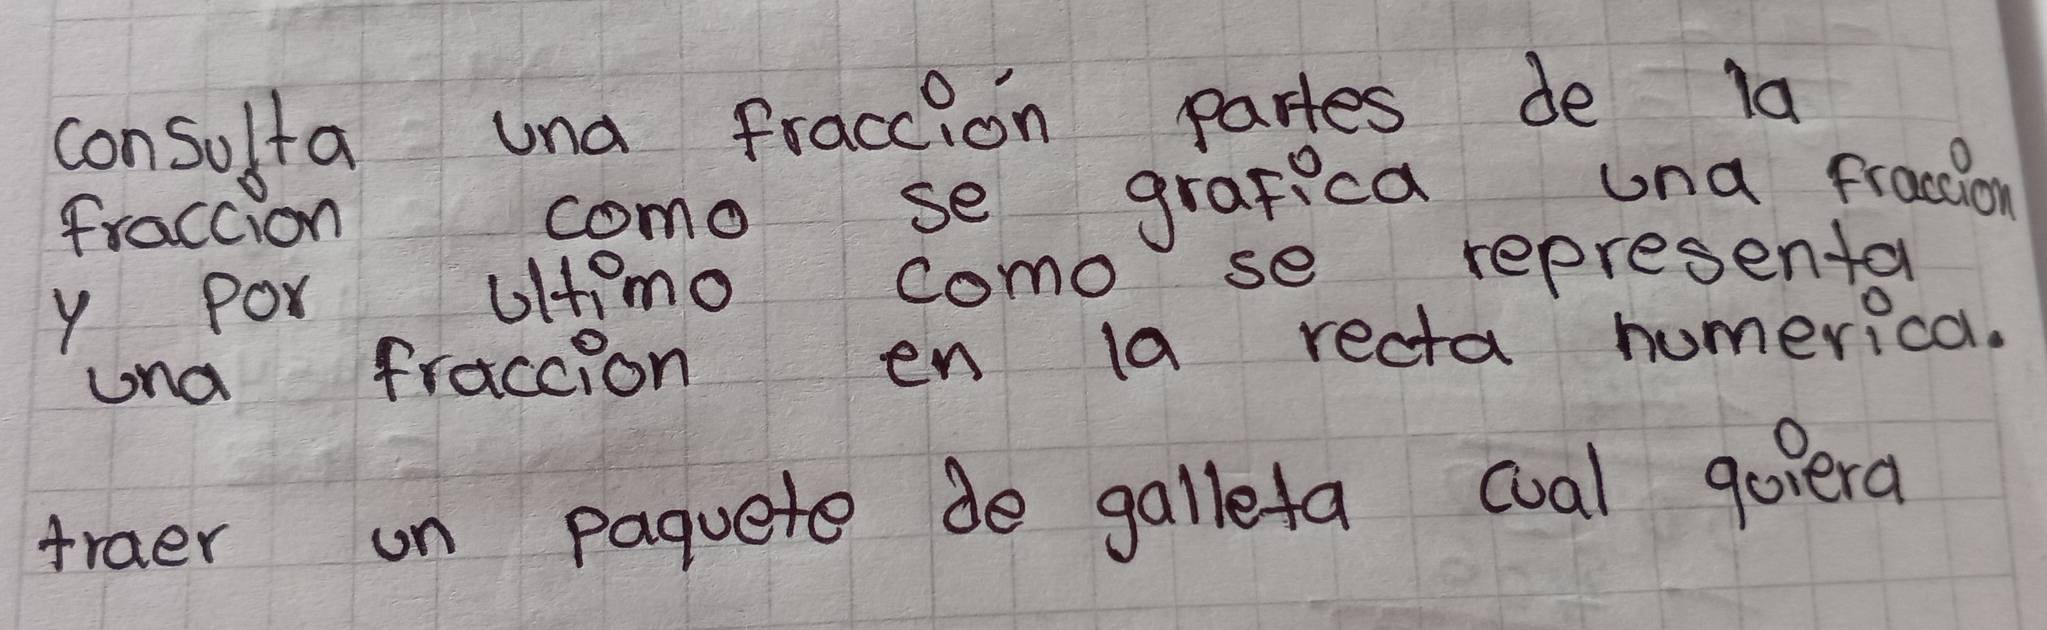 consulta una fracción partes de la
fraccion como se grafica una fraccion
y por ultimo como se representa
una fraccion en la recta numerica.
traer un paquete de galleta cual quiera